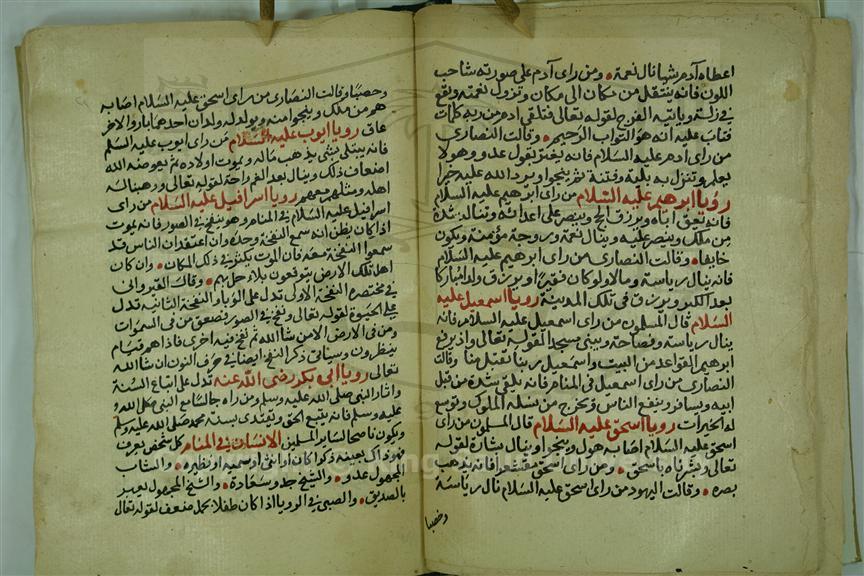 اعطاه آدم شيا نال نعمة ومن راى آدم على صورته شاحب
اللون فانه ينتقل من مكان الى مكان وتزول نعمته ويقع
في زلة وياتيه الفرج لقوله تعالى فتلقى ادم من ربه كلمات
فتاب عليه انه هو التواب الرحيم وقالت النصارى
من راى آدم عليه السلام فانه يغتر بقول عدو وهو لا
يعلم وتنزل به بلية وفتنة ثم ينجوا ويرد الله عليه خيرا
رؤيا ابرهيم عليه السلام من راى ابرهيم عليه السلام
فانه يعق اباه ويرزق الحج وينصر على اعدائه وتناله شدة
من ملك وينصر عليه وينال نعمة وزوجة مؤمنة ويكون
خايفا وقالت النصارى من راى ابرهيم عليه السلام
فانه ينال رياسة ومالا ولو كان فقيرا ويرزق ولدا مباركا
بعد الكبر ويرزق في تلك المدينة رويا اسمعيل عليه
السلام قال المسلمون من راى اسمعيل عليه السلام فانه
ينال رياسة وفصاحة ويبنى مسجدا لقوله تعالى واذ يرفع
ابرهيم القواعد من البيت واسمعيل ربنا تقبل منا وقالت
النصارى من راى اسمعيل في المنام فانه يلقى شدة من قبل
ابيه ويسافر وينفع الناس وتخرج من نسله الملوك وتوسع
له الخيرات رويا اسحق عليه السلام قال المسلمون من راى
اسحق عليه السلام اصابه هول وينجوا وينال بشارة لقوله
تعالى وبشرناه باسحق ومن راى اسحق فانه يذهب
بصره وقالت اليهود من راى اسحق عليه السلام نال رياسة
وخصبا
وخصبا وقالت النصارى من راى اسحق عليه السلام اصابه
هم من ملك وينجوا منه ويولد له ولدان احدهما بار والاخر
عاق رويا ايوب عليه السلام من راى ايوب عليه السلم
فانه يبتلى بشى يذهب ماله ويموت اولاده ثم يعوضه الله
اضعاف ذلك وينال بعد الغم راحة لقوله تعالى ووهبنا له
اهله ومثلهم معهم رويا اسرافيل عليه السلام من راى
اسرافيل عليه السلام في المنام وهو ينفخ في الصور فانه يموت
اذا كان يظن انه سمع النفخة وحده وان اعتقد ان الناس قد
سمعوا النفخة معه فان الموت يكثر في ذلك المكان وان كان
اهل تلك الارض يتوقعون بلاء حل بهم وقال القيروانى
في مختصره النفخة الاولى تدل على الوبا والنفخة الثانية تدل
على الحيوة لقوله تعالى ونفخ في الصور فصعق من في السموات
ومن في الارض الا من شا الله ثم نفخ فيه اخرى فاذا هم قيام
ينظرون وسياتى ذكر النفخ ايضا في حرف النون ان شا الله
تعالى رويا ابى بكر رضى الله عنه تدل على اتباع السنة
واثار النبى صلى الله عليه وسلم ومن راه جالسا مع النبى صلى الله
عليه وسلم فانه يتبع الحق ويقتدى بسنة محمد صلى الله عليه وسلم
ويكون ناصحا لساير المسلمين الانسان في المنام كل شخص يعرف
فهو ذاك بعينه ذكرا كان او انثى او سميه او نظيره والشاب
المجهول عدو والشيخ جد وسعادة والشيخ المجهول يعبر
بالصديق والصبى في الرويا اذا كان طفلا يحمل ضعف لقوله تعالى